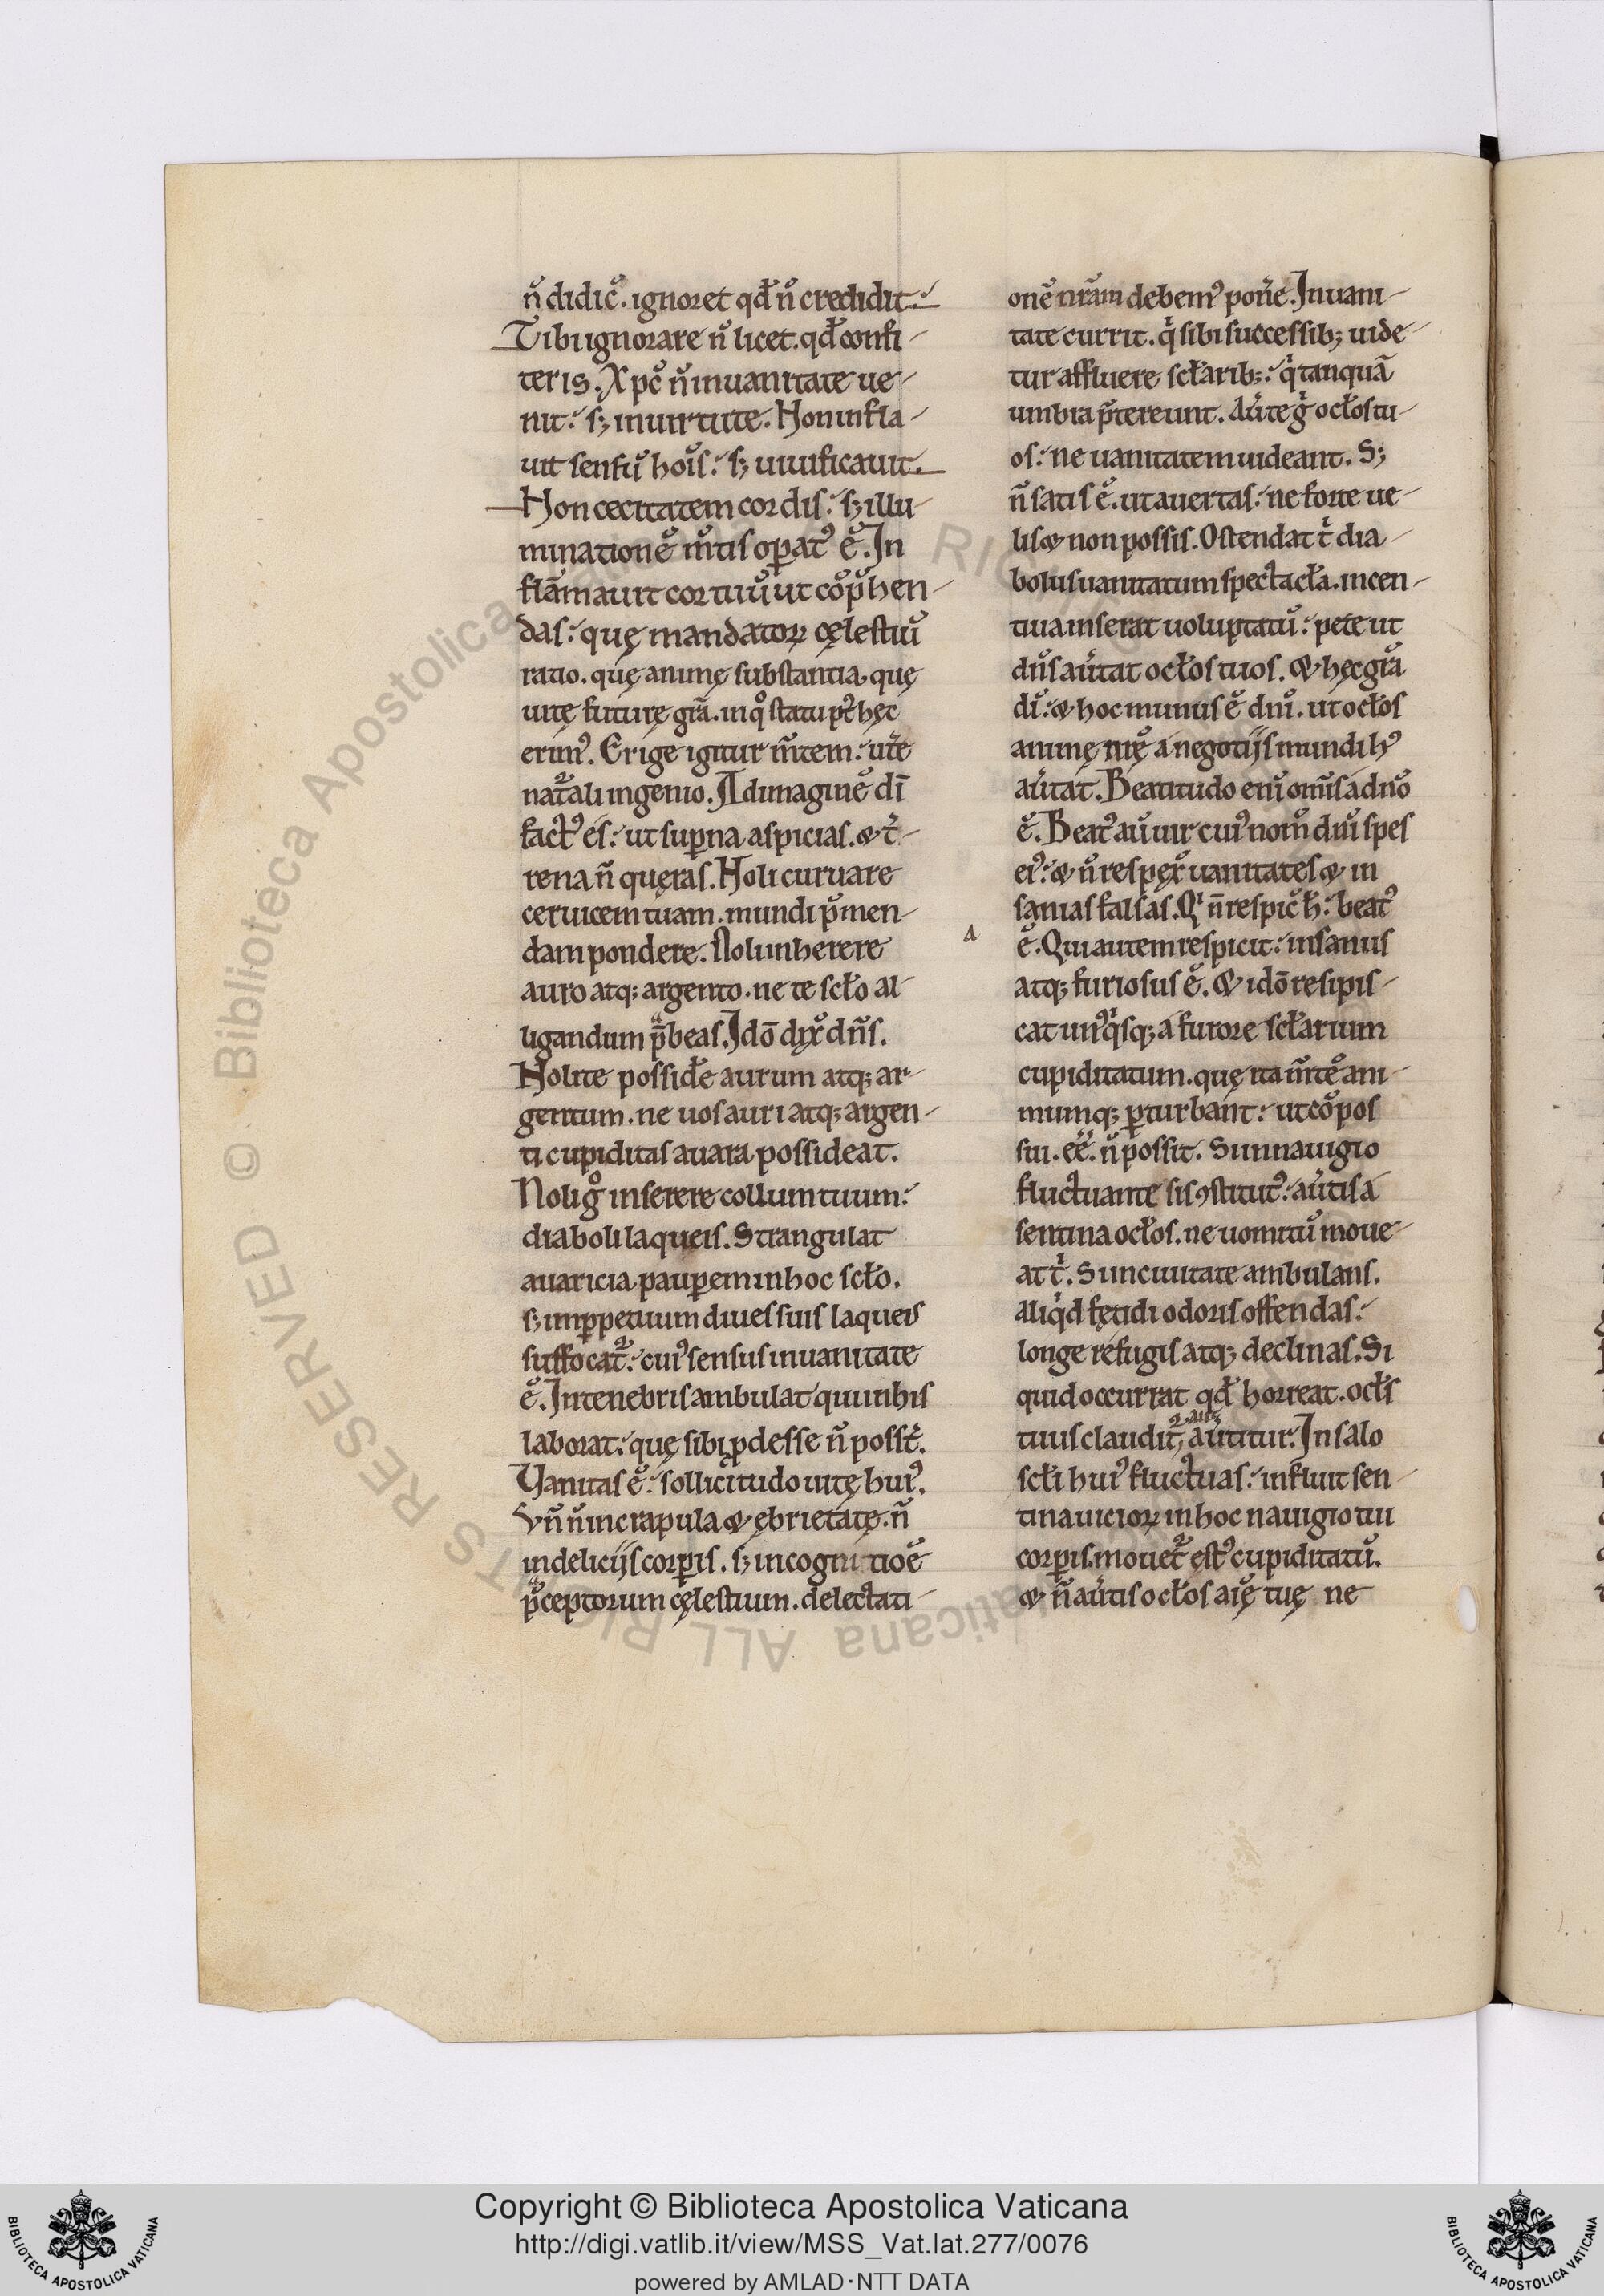 n̄ didic̄. ignoret qđ n̄ credidit.
Tibi ignorare n̄ licet. qđ confi-
teris. Xpc̄ n̄ in uanitate ue-
nit: s; in uirtute. Non infla-
uit sensū hoīs: s; uiuificauit.
Non cecitatem cordis: s; illu-
minationē m̄tis opat᾿ ē. In
flāmauit cor tuū ut cōp̄hen-
das: quę mandatoꝝ cęlestiū
ratio. quę animę substantia. quę
uitę futurę grā. in qͦ statu pͭ hęc
erim᾿. Erige igitur m̄tem: ut̄e
nat᷑ali ingenio. Ad imaginē dī
fact᾿ es: ut suꝑna aspicias. & t̄-
rena n̄ quęras. Noli curuare
ceruicem tuam. mundi p̄men-
dam pondere. Noli inherere
auro atq; argento. ne te scło al-
ligandum p̄beas. Idō dix̄ dn̄s.
Nolite possid̄e aurum atq; ar-
gentum. ne uos auri atq; argen-
ti cupiditas auara possideat.
Noli gͦ inserere collum tuum:
diaboli laqueis. Strangulat
auaricia pauꝑem in hoc scło.
s; in ꝑpetuum diues suis laqueis
suffocat᷑: cui᾿ sensus in uanitate
ē. In tenebris ambulat qui in his
laborat: quę sibi ꝓdesse n̄ posst̄.
Vanitas ē: sollicitudo uitę hui᾿.
Vn̄ n̄ in crapula & ębrietatę. n̄
in delicijs corꝑis. s; in cognitioē
p̄ceptorum cęlestium. delectati-
onē nrām debem᾿ pon̄e. In uani-
tate currit. qͥ sibi successib; uide-
tur affluere scłarib;: qͥ tanquā
umbra p̄tereunt. Aūte gͦ ocłos tu-
os: ne uanitatem uideant. S;
n̄ satis ē. ut auertas: ne forte ue-
lis & non possis. Ostendat tͥ dia-
bolus uanitatum spectacła. incen-
tiua inserat uoluptatū: pete ut
dn̄s aūtat ocłos tuos. & hęc grā
dī: & hoc munus ē dnī. ut ocłos
animę nrę̄ a negotijs mundi h᾿
aūtat. Beatitudo enī om̄is a dnō
ē. Beat᾿ aū uir cui᾿ nom̄ dnī spes
ei᾿: & n̄ respex̄ uanitates & in
sanias falsas. Qͥ n̄ respic̄ h̄: beat᾿
ē. Qui autem respicit: insanus
atq; furiosus ē. & idō resipis-
cat un᾿qͥsq; a furore scłarium
cupiditatum. quę ita m̄tē ani-
mumq; ꝑturbant: ut cōpos
sui. eē. n̄ possit. Si in nauigio
fluctuante sis ꝯstitut᾿: aūtis a
sentina ocłos. ne uomitū moue-
at tͥ. Si in ciuitate ambulans.
aliqͥd fętidi odoris offendas:
longe refugis atq; declinas. Si
quid occurrat qđ horreat. ocłs
tuus claudit᷑, aūtitur. In salo
scłi hui᾿ fluctuas: influit sen-
tina uicioꝝ in hoc nauigio tui
corꝑis. mouet᷑ ęst᾿ cupiditatū.
& n̄ aūtis ocłos aīę tuę ne
A
Copyright © Biblioteca Apostolica Vaticana
http://digi.vatlib.it/view/MSS_Vat.lat.277/0076
powered by AMLAD·NTT DATA
BIBLIOTECA APOSTOLICA VATICANA
BIBLIOTECA APOSTOLICA VATICANA
© Biblioteca Apostolica Vaticana ALL RIGHTS RESERVED